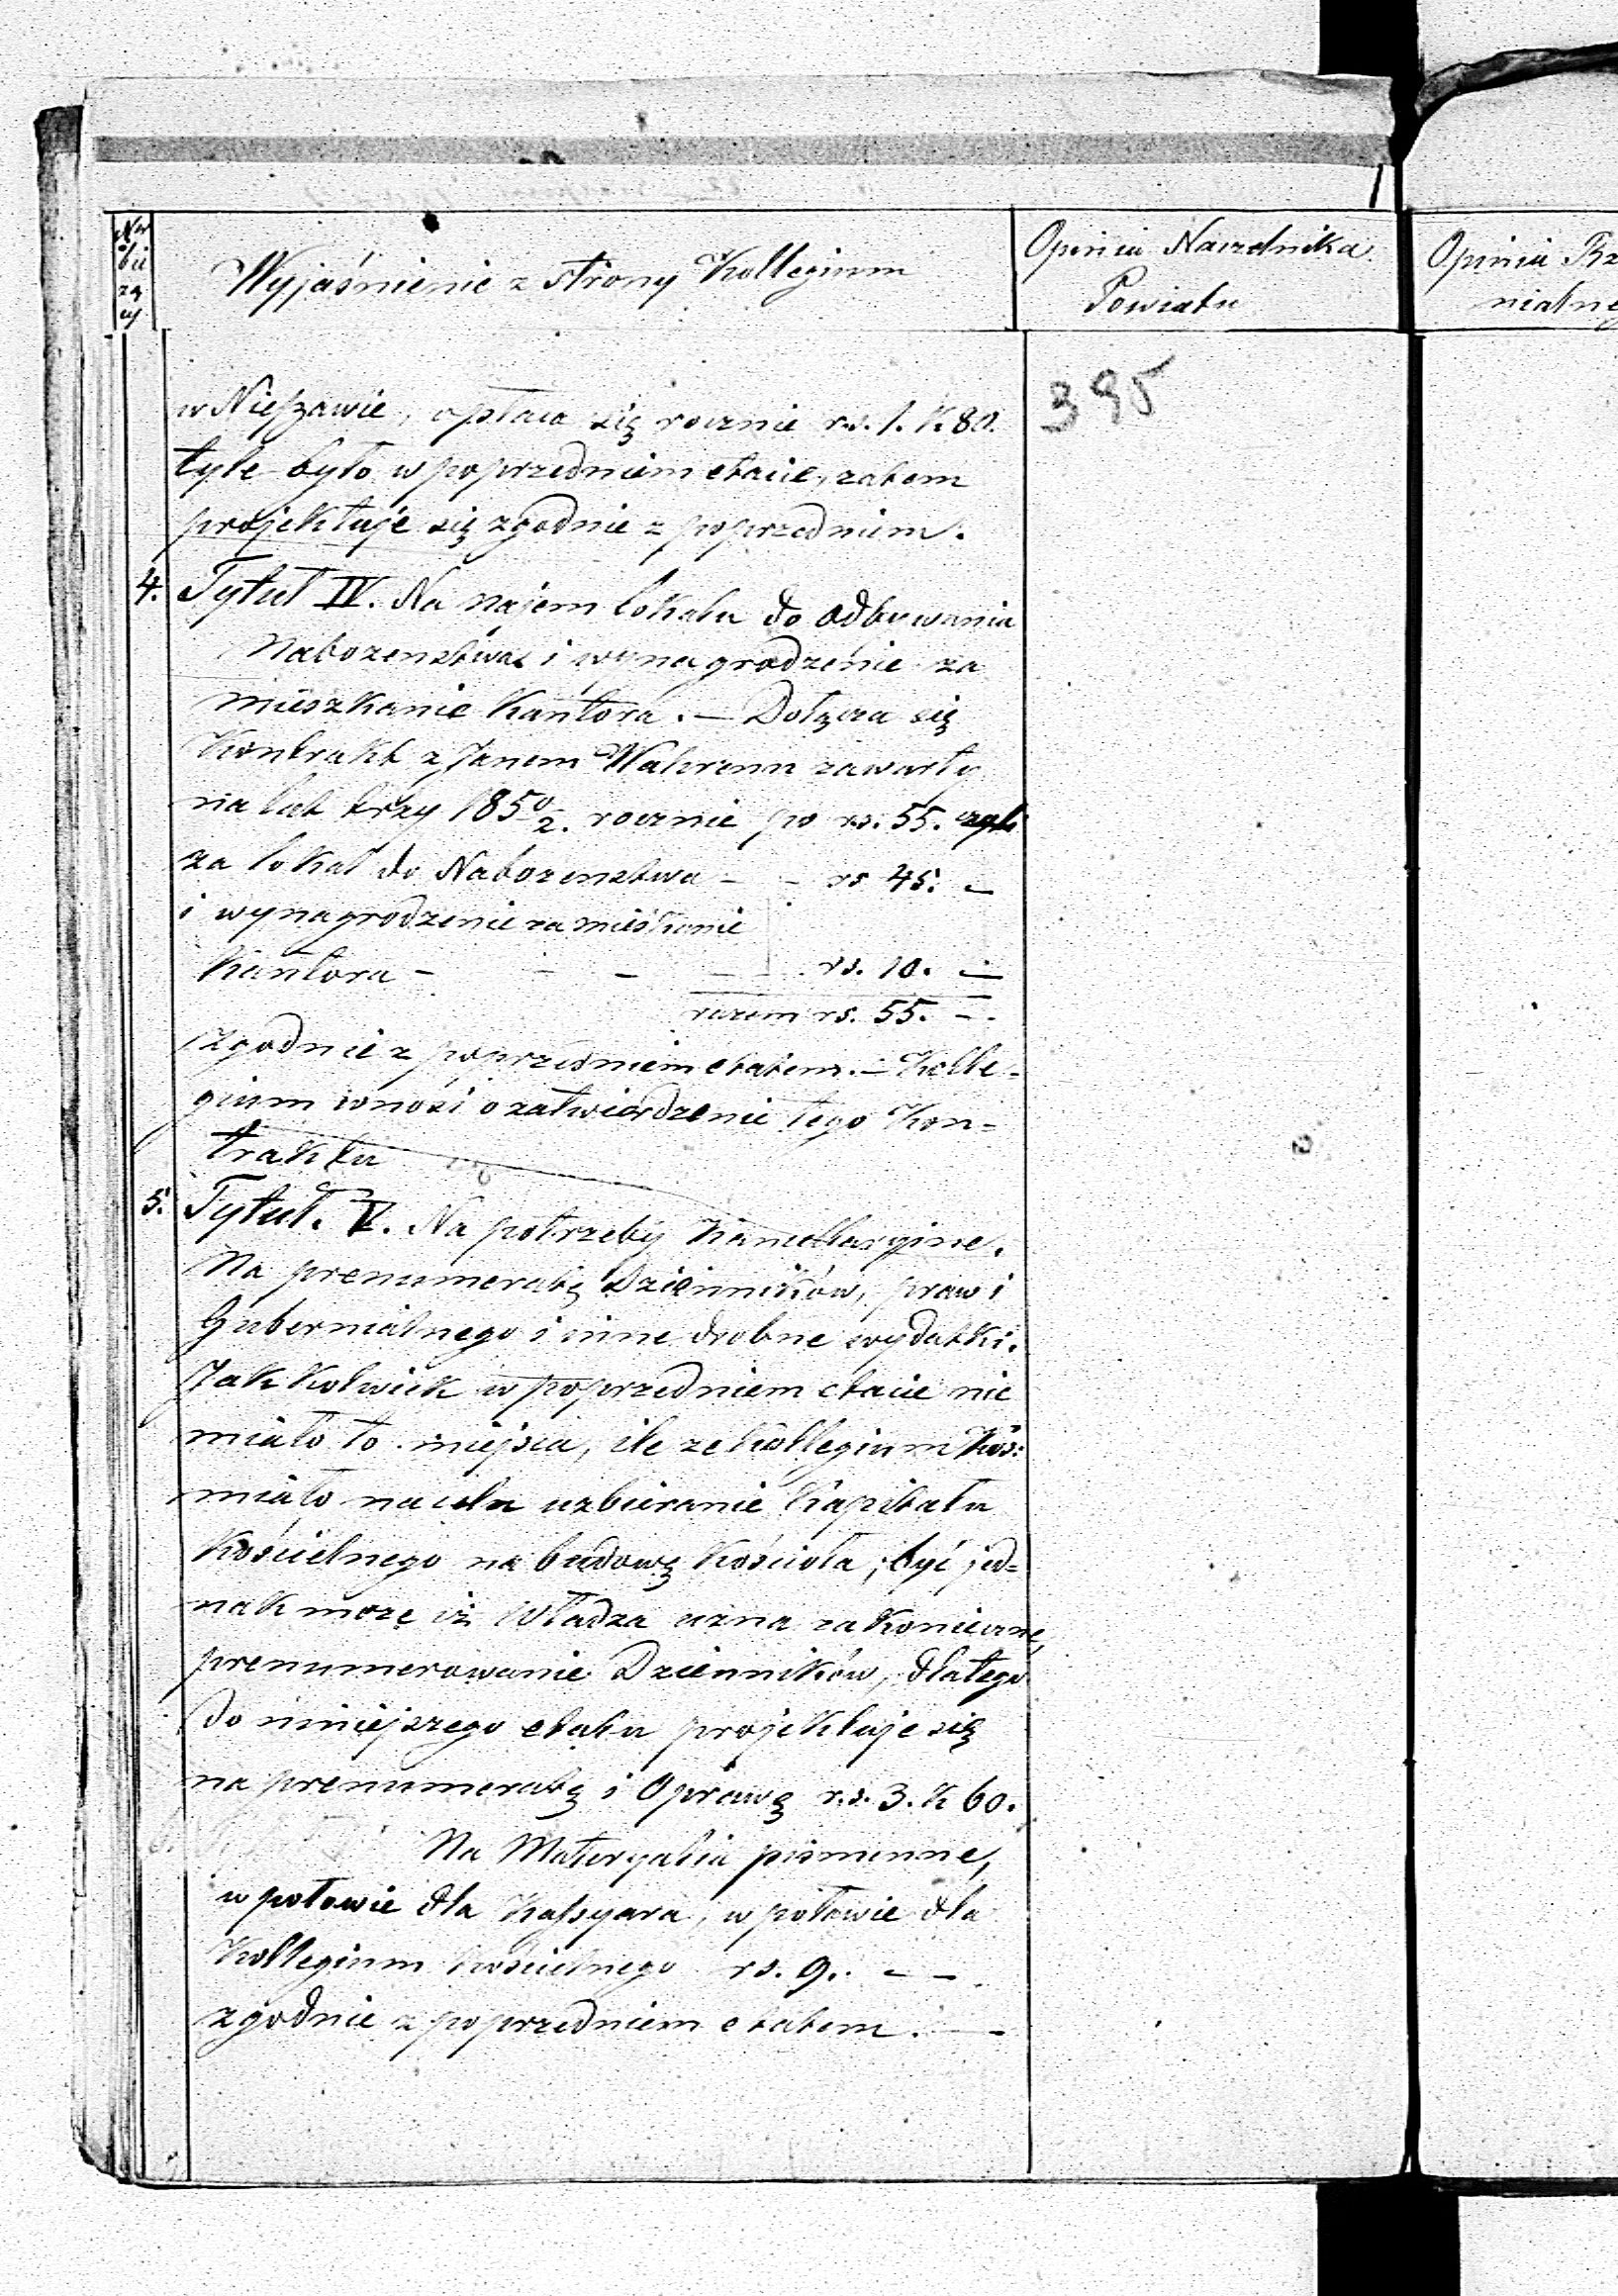 Nr bie żą cy
Wyjaśnienie z strony Kollegium
Opinia Naczelnika
Powiatu
Opinia Rz
nialne
395
w Nieszawie, opłaca się rocznie rs. 1. K. 80.
tyle było w poprzedniem etacie, zatem
projektuje się zgodnie z poprzednim.
4. Tytuł IV. Na najem lokalu do odbywania
Nabożeństwa i wynagrodzenie za
mieszkanie Kantora. — Dołącza się
Kontrakt z Janem Wahrenn zawarty
na lat trzy 1850/2. rocznie po rs. 55. czyli
za lokal do Nabożeństwa - - rs 45. —
i wynagrodzenie za mieśkanie
Kantora - - - - rs. 10. —
razem rs. 55. - -
zgodnie z poprzedniem etatem. - Kolle-
gium wnosi o zatwierdzenie tego Kon-
traktu
5. Tytuł. V. Na potrzeby Kancellaryine.
Na prenumeratę Dzienników, praw i
Gubernialnego i inne drobne wydatki.
Jakkolwiek w poprzedniem etacie nie
miało to miejsca, ile że Kollegium Koś:
miało na celu uzbieranie Kapitału
Kościelnego na budowę Kościoła; być jed-
nak może iż Władza uzna za konieczne,
prenumerowanie Dzienników, dlatego
do niniejszego etatu projektuje się
na prenumeratę i Oprawę r.s. 3. K 60.
Na Materyalia piśmienne,
w połowie dla Kassyera, w połowie dla
Kollegium Kościelnego rs. 9. - -
zgodnie z poprzedniem etatem. —